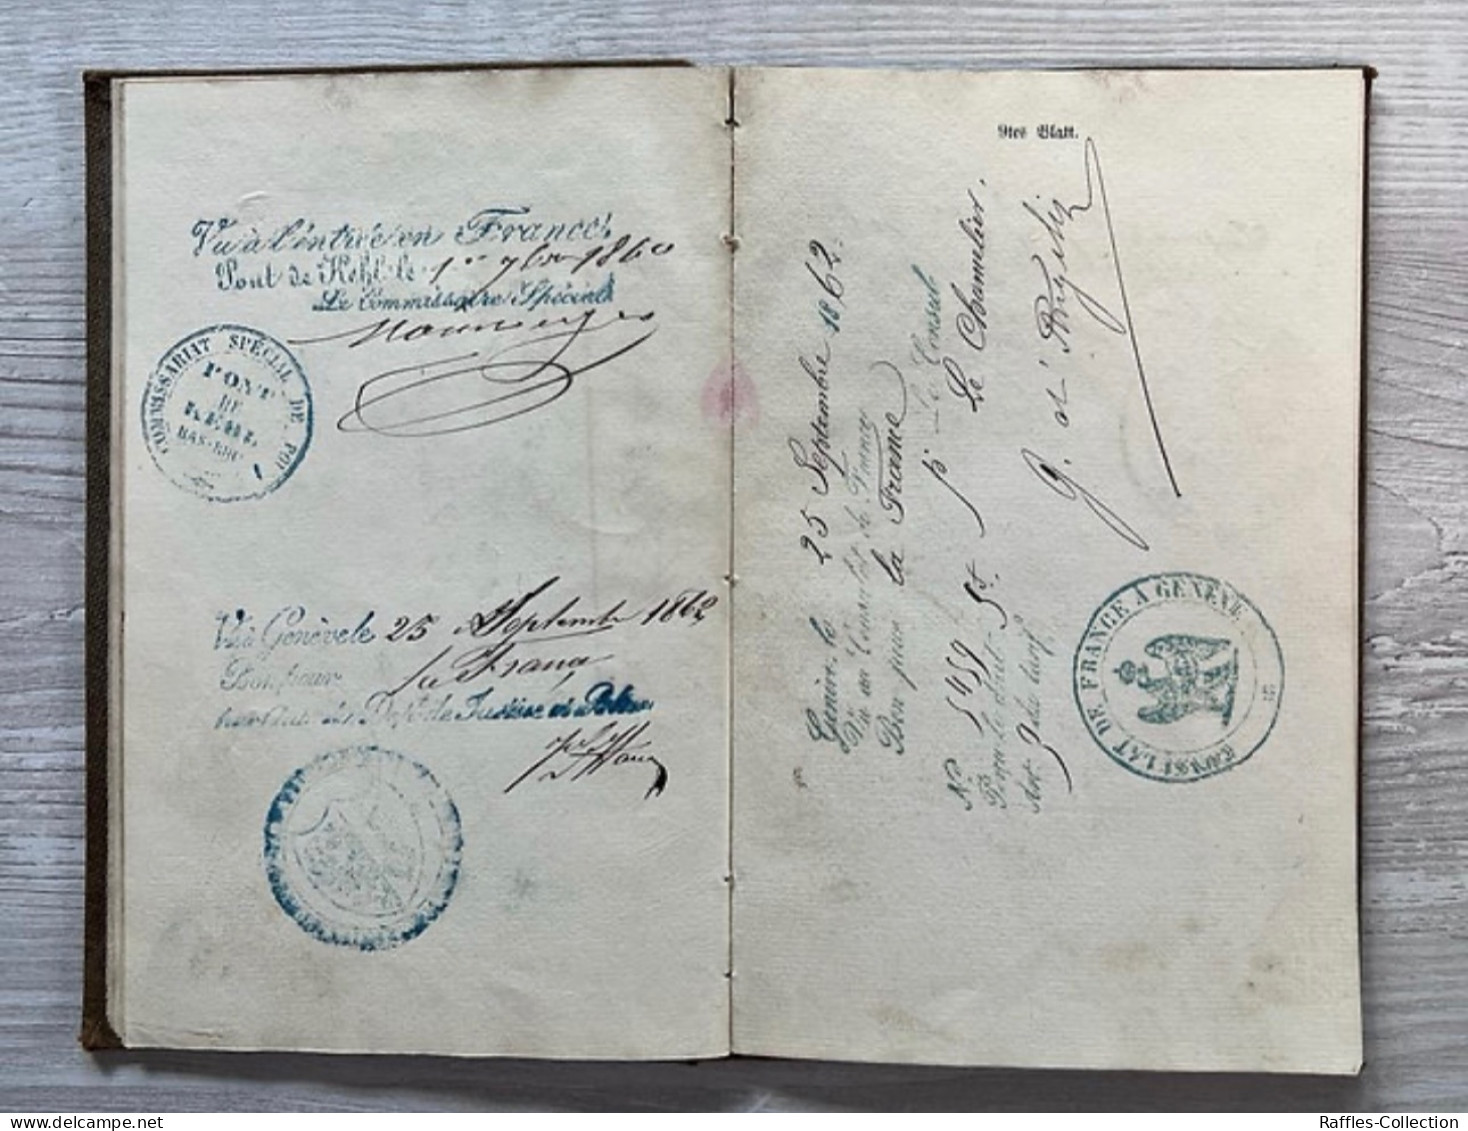 Vu à l'entrée en France
Pont de Kehl le 1er 7bre 1860
Le Commissaire Spécial
COMMISSARIAT SPÉCIAL DE POL
PONT
DE
KEHL
BAS-RHIN
Vu à Genève le 25 Septembre 1862
Bon pour la France
Dépt de Justice et Police
9tes Blatt.
Genève, le 25 Septembre 1862.
Vu au Consulat de France
Bon pour la France
p. Le Consul
Le Chancelier,
No 5459
Perçu le droit 5f.
Art. 9 du tarif
CONSULAT DE FRANCE A GENÈVE
Raffles-Collection